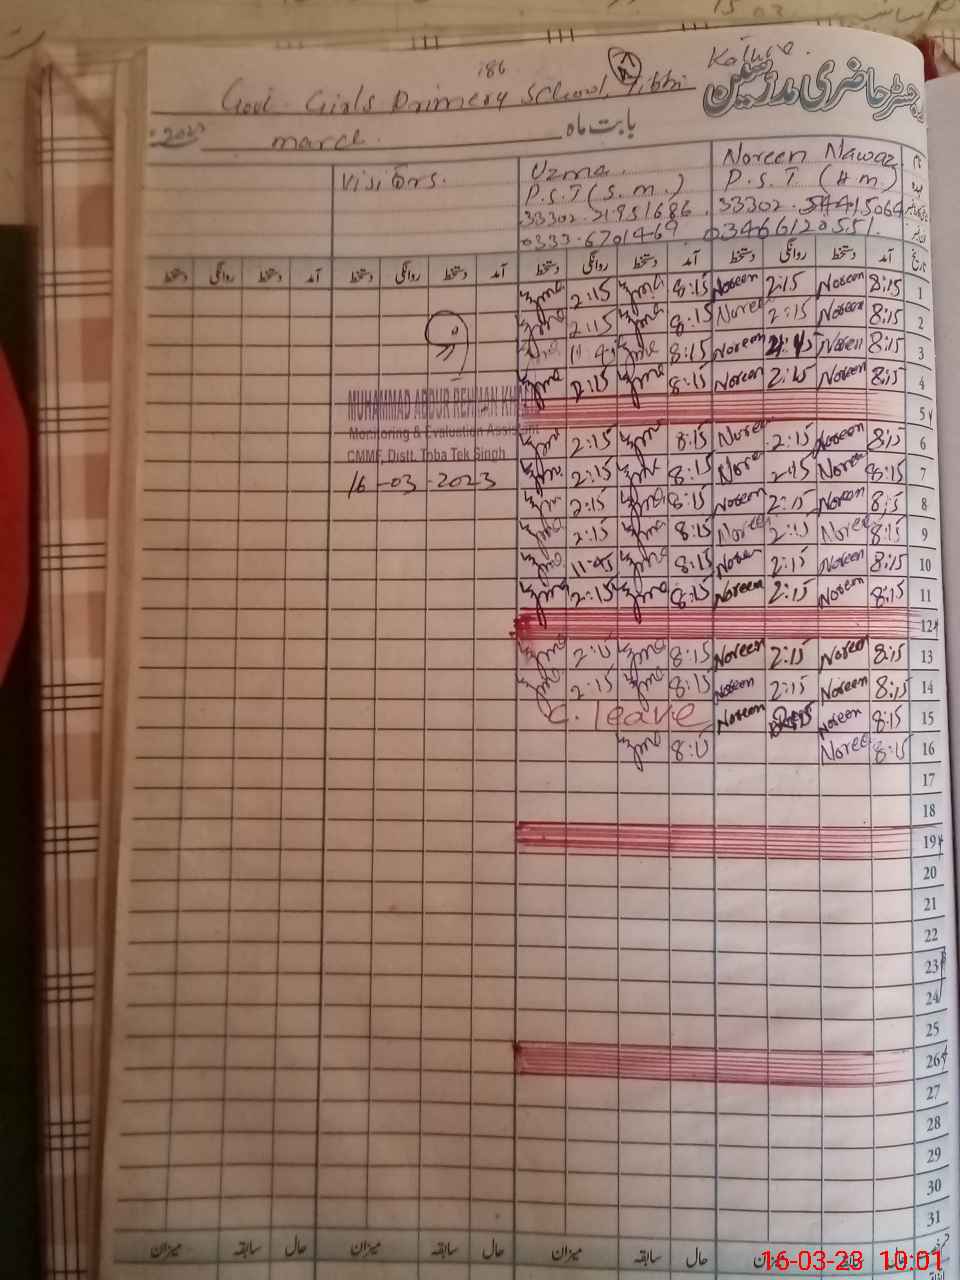 186
Govt. Girls Primery School, Tibbi
رجسٹر حاضری مدرسین
2023 march. بابت ماہ
Visitors. Uzma. Noreen Nawaz نام
P.S.T (S.M.) P.S.T (H.M) عہدہ
33302.21951686. 33302.
0333-6701469 03466120551.
دستخط روانگی دستخط آمد دستخط روانگی دستخط آمد دستخط روانگی دستخط آمد دستخط روانگی دستخط آمد تاریخ
Uzma 2:15 Uzma 8:15 Noreen 2:15 Noreen 8:15 1
Uzma 2:15 Uzma 8:15 Noreen 2:15 Noreen 8:15 2
Uzma 11:45 Uzma 8:15 Noreen Noreen 8:15 3
Uzma 2:15 Uzma 8:15 Noreen 2:15 Noreen 8:15 4
MUHAMMAD ABDUR REHMAN
5
Monitoring & Evaluation Assistant
Uzma 2:15 Uzma 8:15 Noreen 2:15 Noreen 8:15 6
CMMF, Distt. Toba Tek Singh
16-03-2023
Uzma 2:15 Uzma 8:15 Noreen Noreen 8:15 7
Uzma 2:15 Uzma 8:15 Noreen 2:15 Noreen 8:15 8
Uzma 2:15 Uzma 8:15 Noreen 2:15 Noreen 8:15 9
Uzma 11:45 Uzma 8:15 Noreen 2:15 Noreen 8:15 10
Uzma 2:15 Uzma 8:15 Noreen 2:15 Noreen 8:15 11
12
Uzma 2:15 Uzma 8:15 Noreen 2:15 Noreen 8:15 13
Uzma 2:15 Uzma 8:15 Noreen 2:15 Noreen 8:15 14
C. leave Noreen Noreen 8:15 15
Uzma 8:15 Noreen 8:15 16
17
18
19
20
21
22
23
24
25
26
27
28
29
30
31
میزان سابقہ حال میزان سابقہ حال میزان سابقہ حال میزان سابقہ حال
16-03-23 10:01